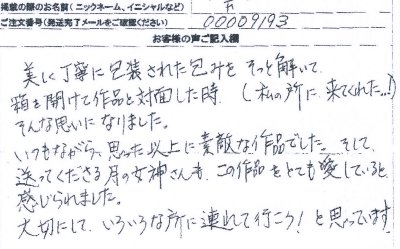 掲載の際のお名前(ニックネーム、イニシャルなど)
ご注文番号(発送完了メールをご確認ください) 00009193
お客様の声ご記入欄
美しく丁寧に包装された包みをそっと解いて、
箱を開けて作品と対面した時、(私の所に来てくれた…!)
そんな思いになりました。
いつもながら、思った以上に素敵な作品でした。そして、
送ってくださる月の女神さんも、この作品をとても愛していると
感じられました。
大切にして、いろいろな所に連れて行こう!と思っています